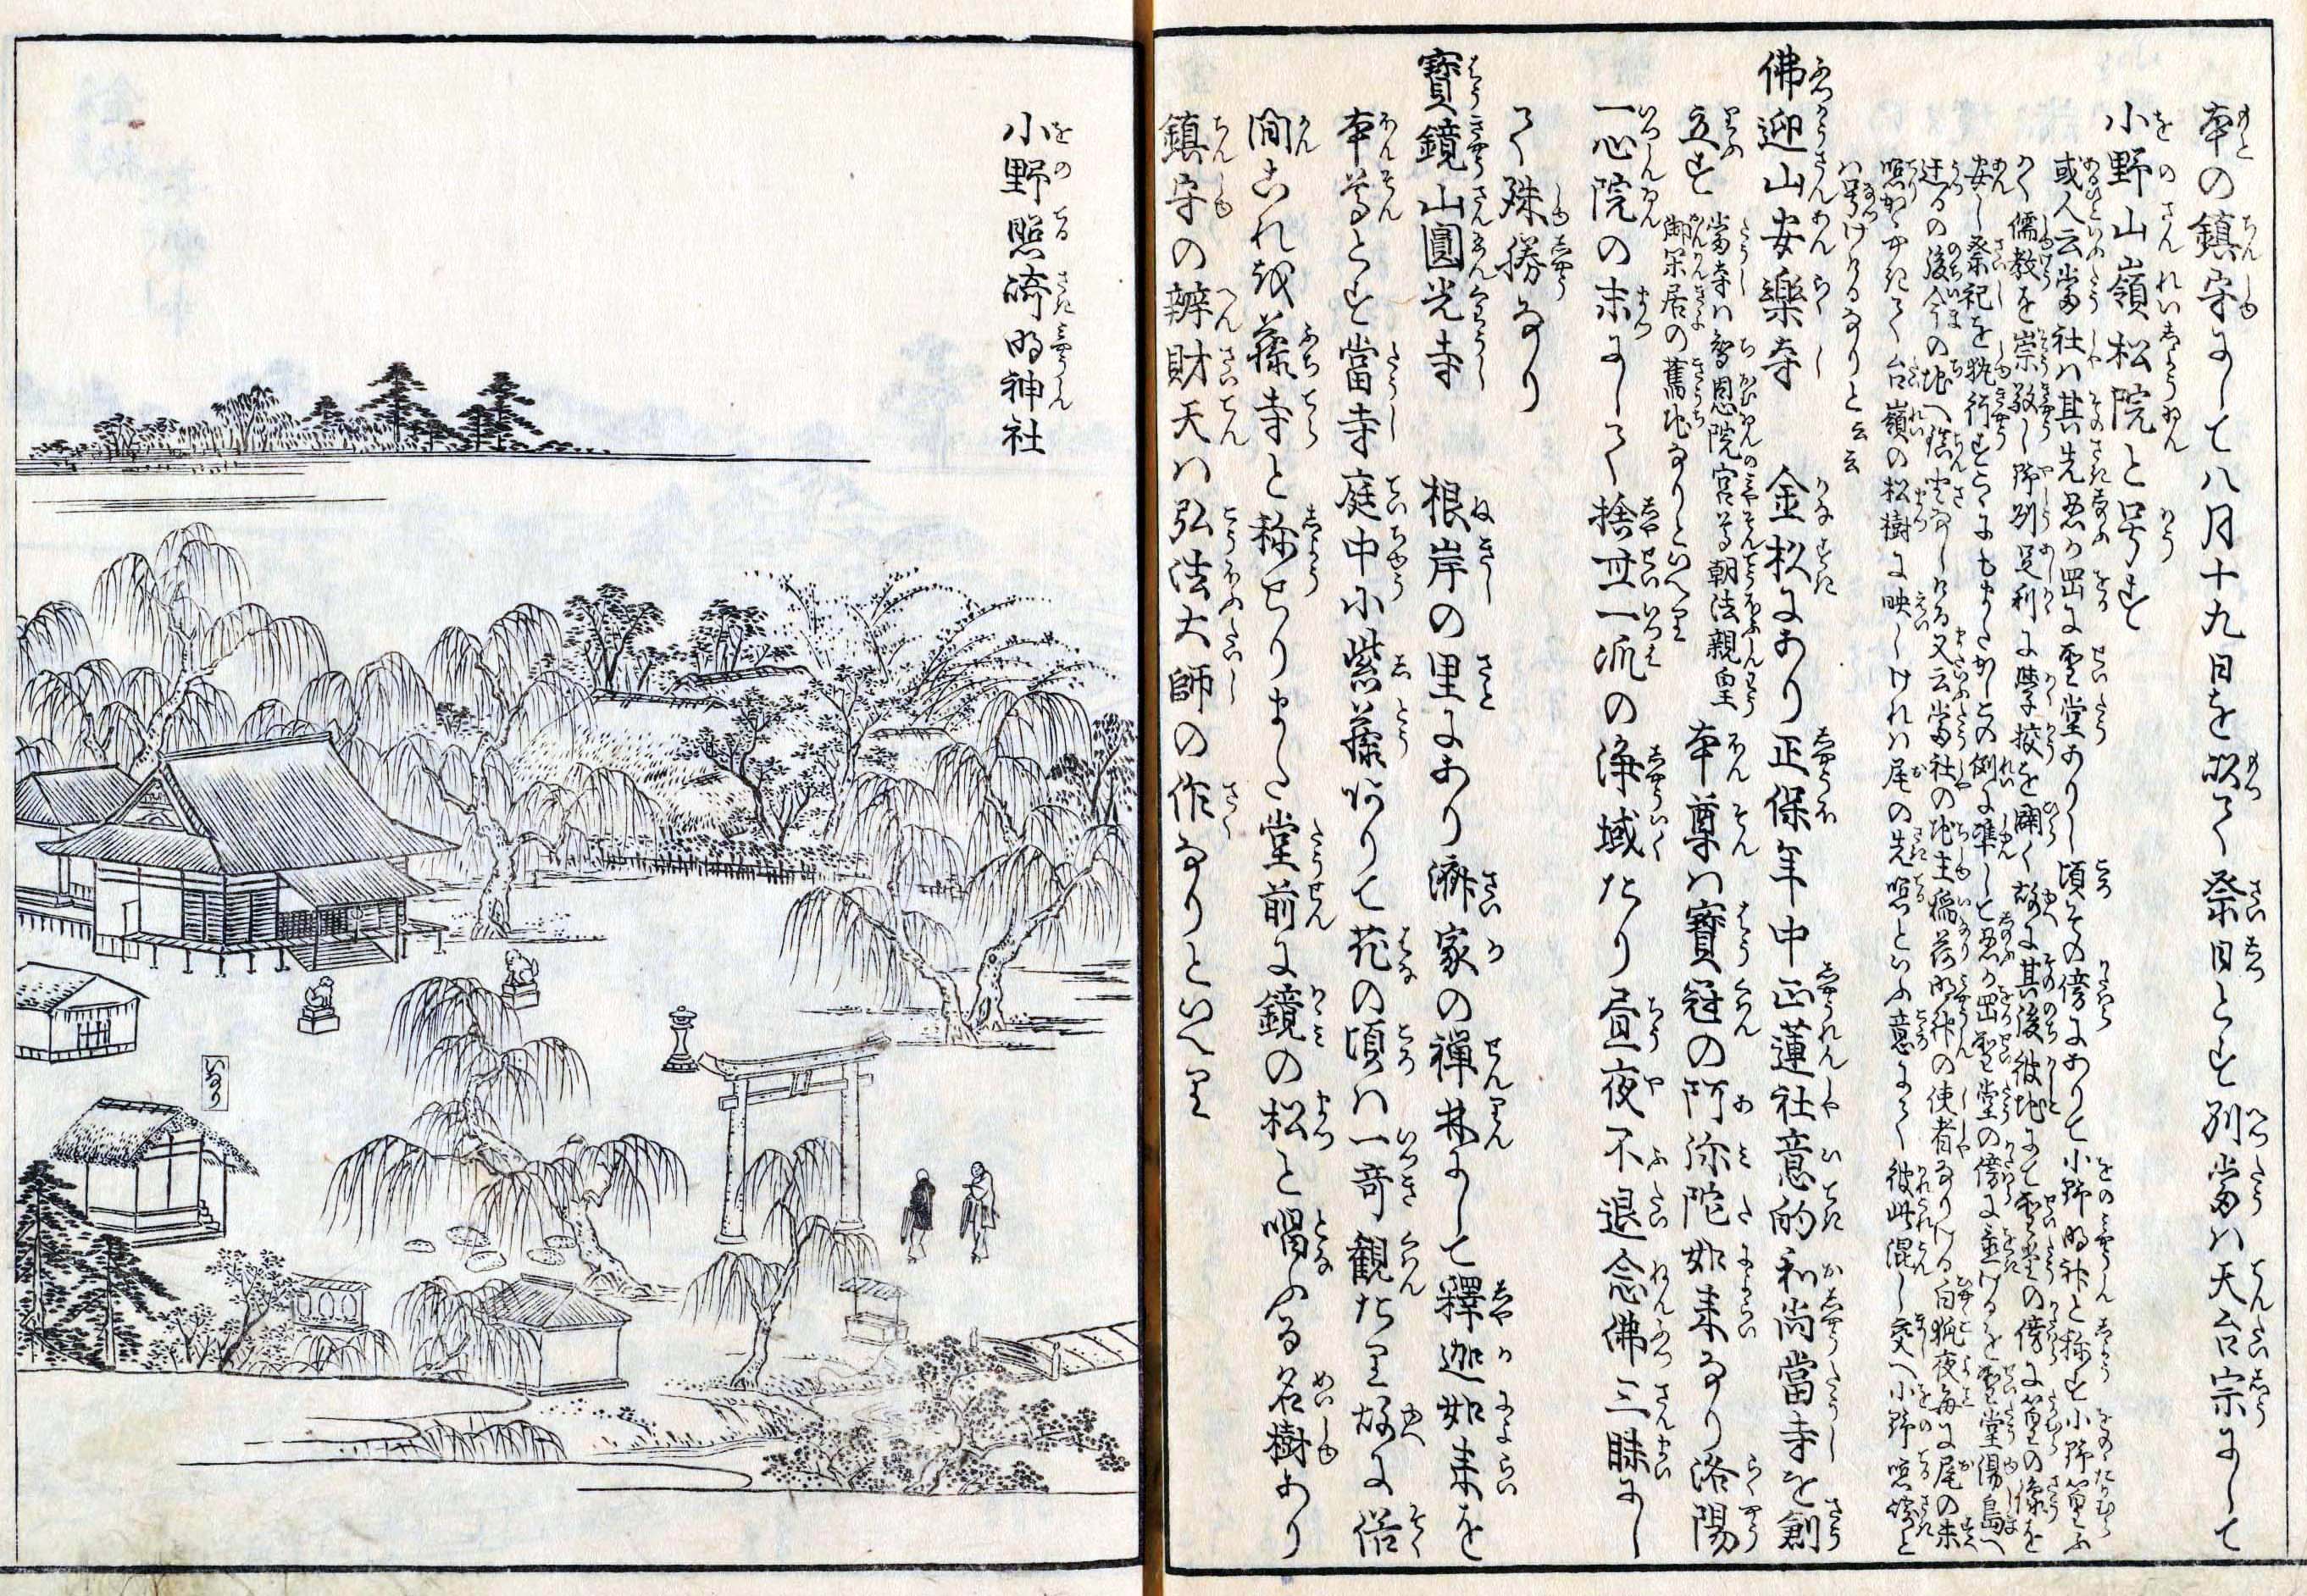 本の鎮守にして八月十九日を以て祭日とす別當ハ天台宗にして
小野山嶺松院と号す
或人云當社ハ其先忍が岡に聖堂ありし頃その傍にありて小野明神と称す小野篁ハふ
かく儒教を崇敬し野州足利に学校を開く故に其後彼地にて聖堂の傍に篁の像を
安し祭祀を執行すこゝにもまたかしこの例に準して忍が岡聖堂の傍に並けるを聖堂湯島へ
迂るの後今の地へ鎮坐なしける又云當社の地主稲荷明神の使者なりける白狐夜毎に尾の末
照かゝやきて台嶺の松樹に映しけれハ尾の先照といふ意にて彼此混し交へ小野照崎と
ハ号けけるなりと云云
佛迎山安樂寺 金杉にあり正保年中正蓮社意的和尚當寺を創
立す 當寺ハ智恩院宮尊朝法親皇御閑居の舊地なりといへり 本尊ハ寶冠の阿弥陀如来なり洛陽
一心院の末にして捨世一派の浄域たり昼夜不退念佛三昧にし
て殊勝なり
寶鏡山圓光寺 根岸の里にあり濟家の禅林にして釋迦如来を
本尊とす當寺庭中に紫藤ありて花の頃ハ一奇観たり故に俗
間これを藤寺と称せりまた堂前に鏡の松と唱ふる名樹あり
鎮守の辨財天ハ弘法大師の作なりといへり
小野照崎明神社
いなり